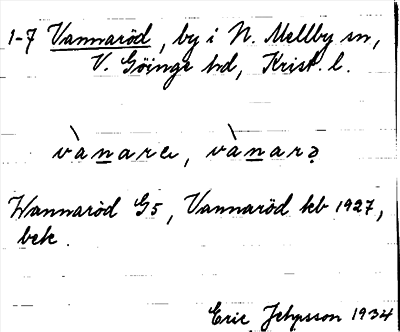 1-7 Vannaröd, by i N. Mellby sn,
V. Göinge hd, Krist. l.
vànare, vànarə
Wannaröd G5, Vannaröd kb 1927,
bek.
Eric 1934